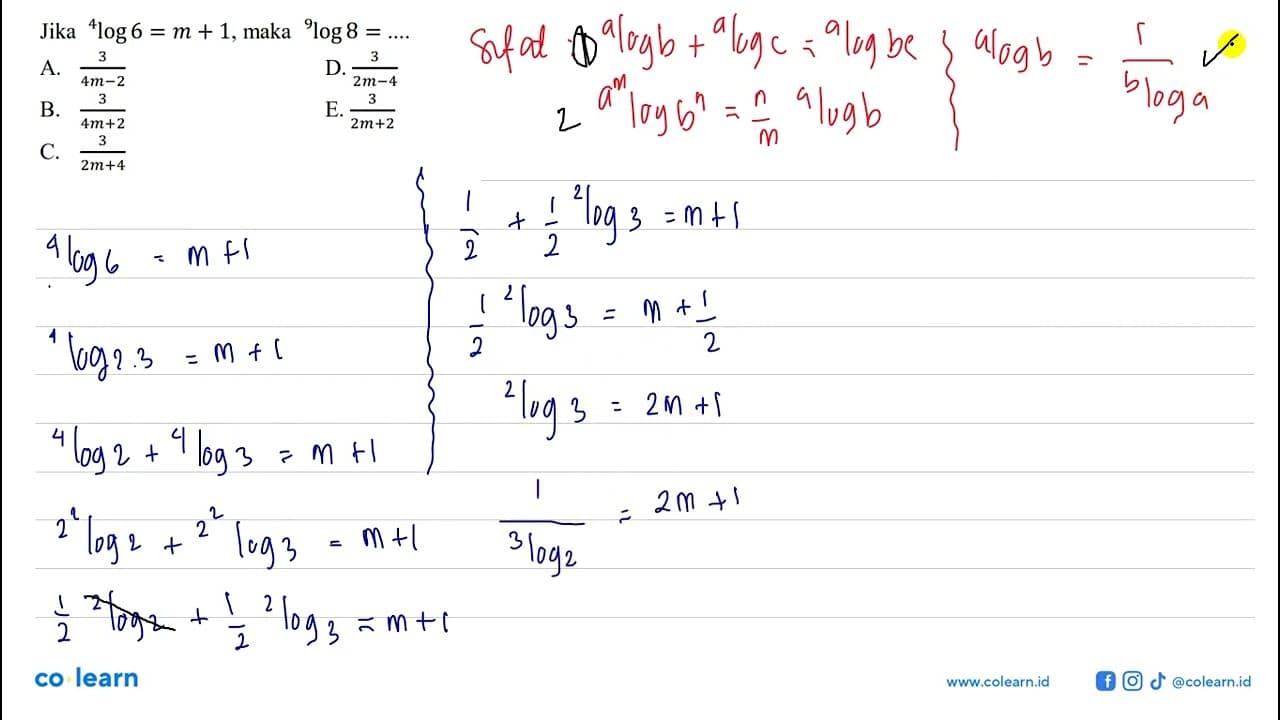 Jika ⁴log 6 = m + 1, maka ⁹log 8 = ....
A. 3/(4m−2)
B. 3/(4m+2)
C. 3/(2m+4)
D. 3/(2m−4)
E. 3/(2m+2)
Sifat ① ᵃlog b + ᵃlog c = ᵃlog bc
2 ᵃ^ᵐlog bⁿ = n/m ᵃlog b
ᵃlog b = 1/(ᵇlog a) ✓
⁴log 6 = m + 1
⁴log 2.3 = m + 1
⁴log 2 + ⁴log 3 = m + 1
2²log 2 + 2²log 3 = m + 1
1/2 ²log 2 + 1/2 ²log 3 = m + 1
1/2 + 1/2 ²log 3 = m + 1
1/2 ²log 3 = m + 1/2
²log 3 = 2m + 1
1/(³log 2) = 2m + 1
co learn
www.colearn.id
@colearn.id